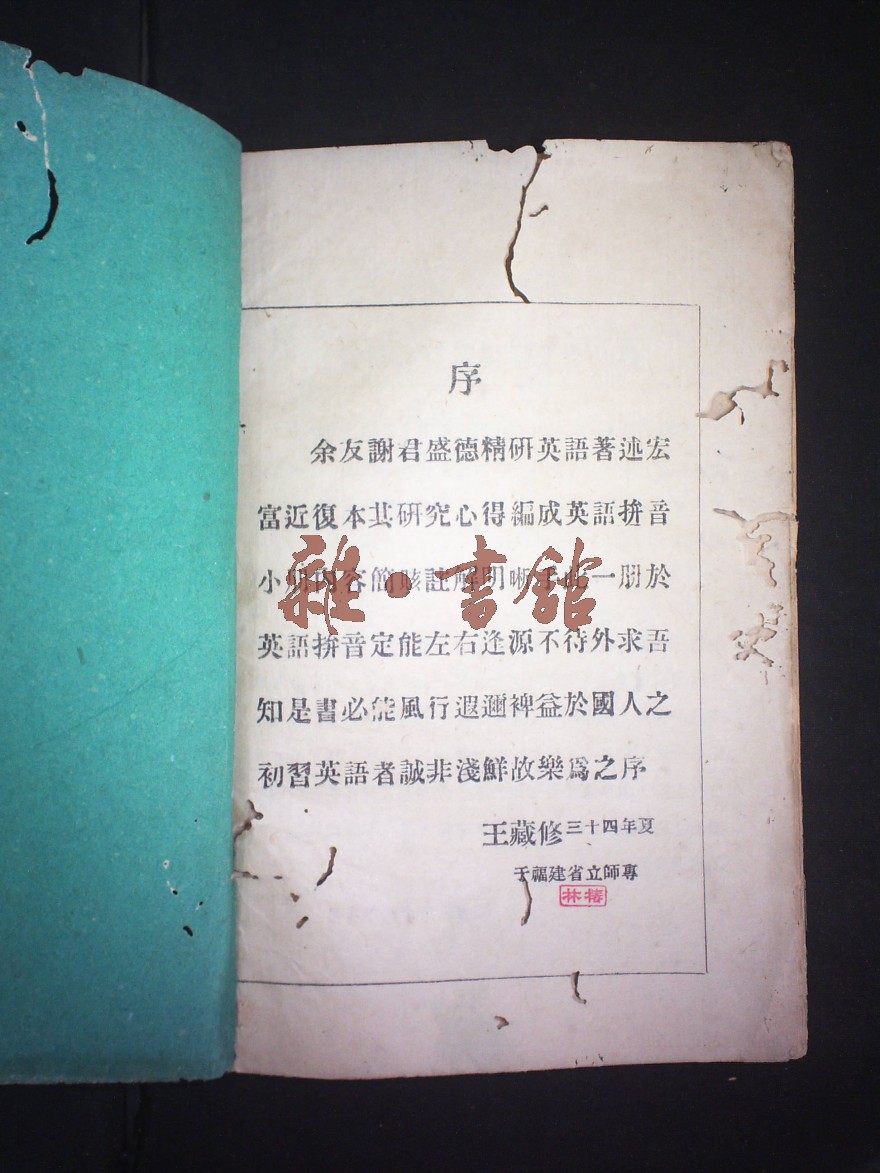 序
余友謝君盛德精研英語著述宏
富近復本其研究心得編成英語拼音
小册内容簡賅註解明晰手此一册於
英語拼音定能左右逢源不待外求吾
知是書必能風行遐邇裨益於國人之
初習英語者誠非淺鮮故樂爲之序
王藏修三十四年夏
于福建省立師專
林椿
雜·書館